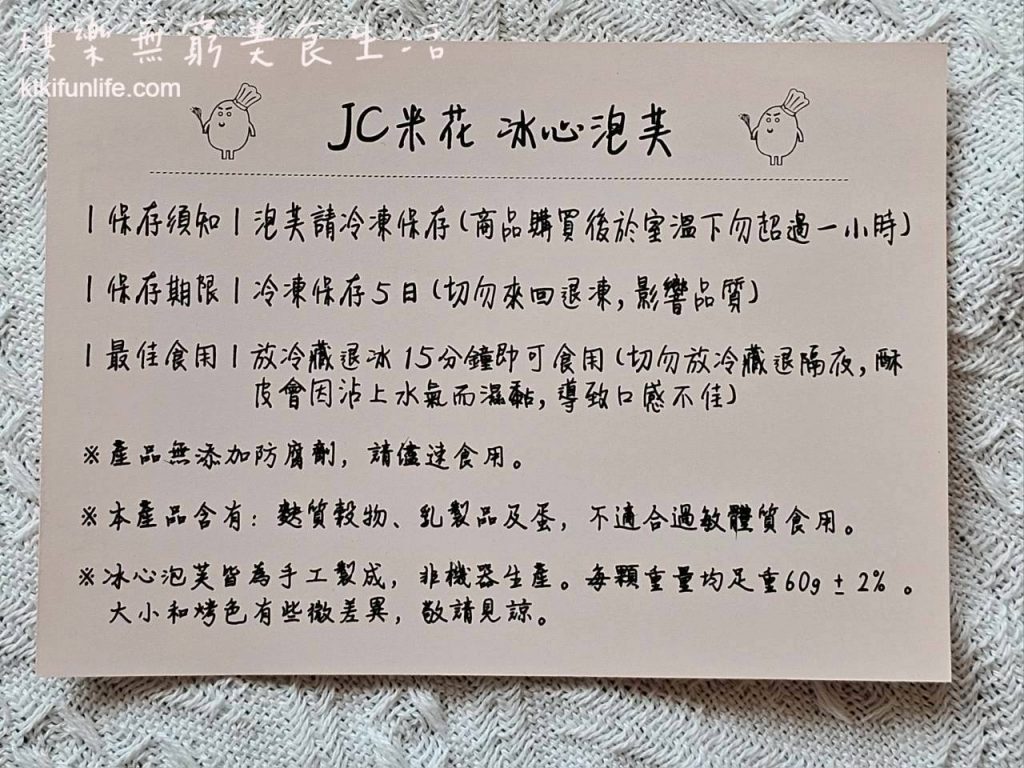 琪樂無窮美食生活
kikifunlife.com
JC米花 冰心泡芙
|保存須知|泡芙請冷凍保存(商品購買後於室溫下勿超過一小時)
|保存期限|冷凍保存5日(切勿來回退凍,影響品質)
|最佳食用|放冷藏退冰15分鐘即可食用(切勿放冷藏退隔夜,酥
皮會因沾上水氣而濕黏,導致口感不佳)
※產品無添加防腐劑,請儘速食用。
※本產品含有:麩質穀物、乳製品及蛋,不適合過敏體質食用。
※冰心泡芙皆為手工製成,非機器生產。每顆重量均足重60g±2%。
大小和烤色有些微差異,敬請見諒。